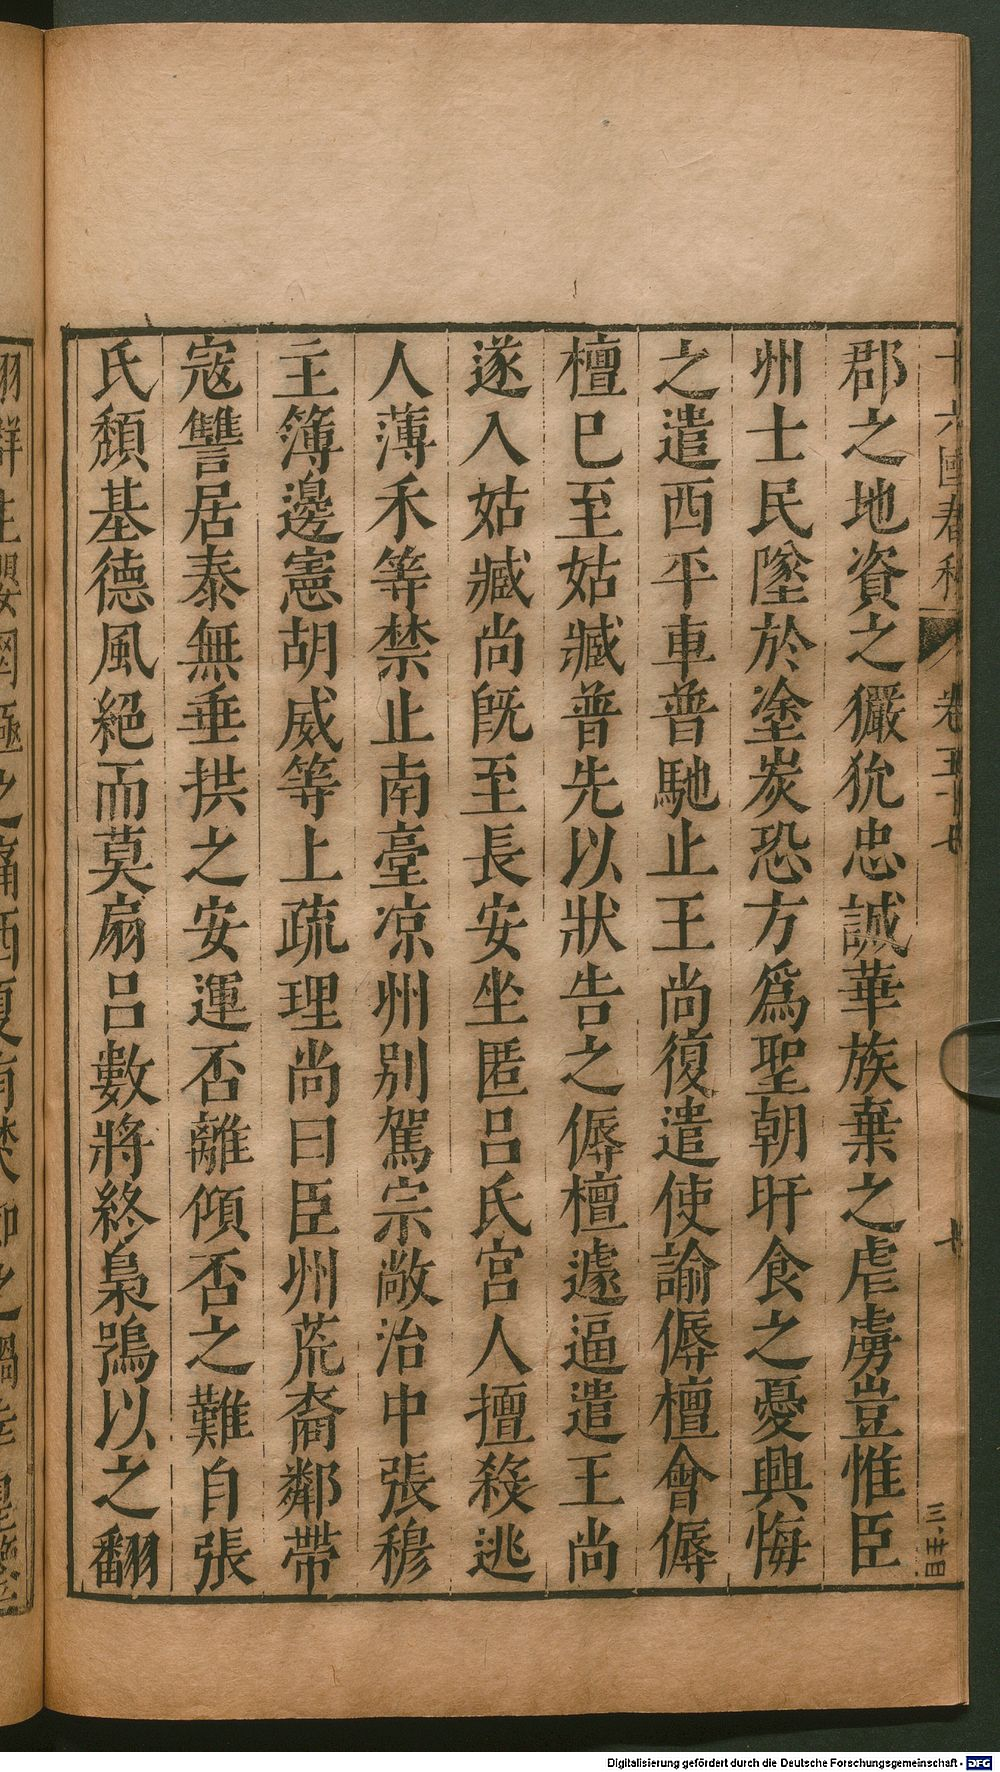 十六國春秋 卷五十七 七
郡之地資之玁狁忠誠華族棄之虐虜豈惟臣
州士民墜於塗炭恐方爲聖朝旰食之憂興悔
之遣西平車普馳止王尚復遣使諭傉檀會傉
檀已至姑臧普先以狀告之傉檀遽逼遣王尚
遂入姑臧尚旣至長安坐匿呂氏宮人擅殺逃
人薄禾等禁止南臺凉州别駕宗敞治中張穆
主簿邊憲胡威等上疏理尚曰臣州荒裔鄰帶
寇讐居泰無垂拱之安運否離傾否之難自張
氏頹基德風絕而莫扇呂數將終梟鴞以之翻
Digitalisierung gefördert durch die Deutsche Forschungsgemeinschaft - DFG